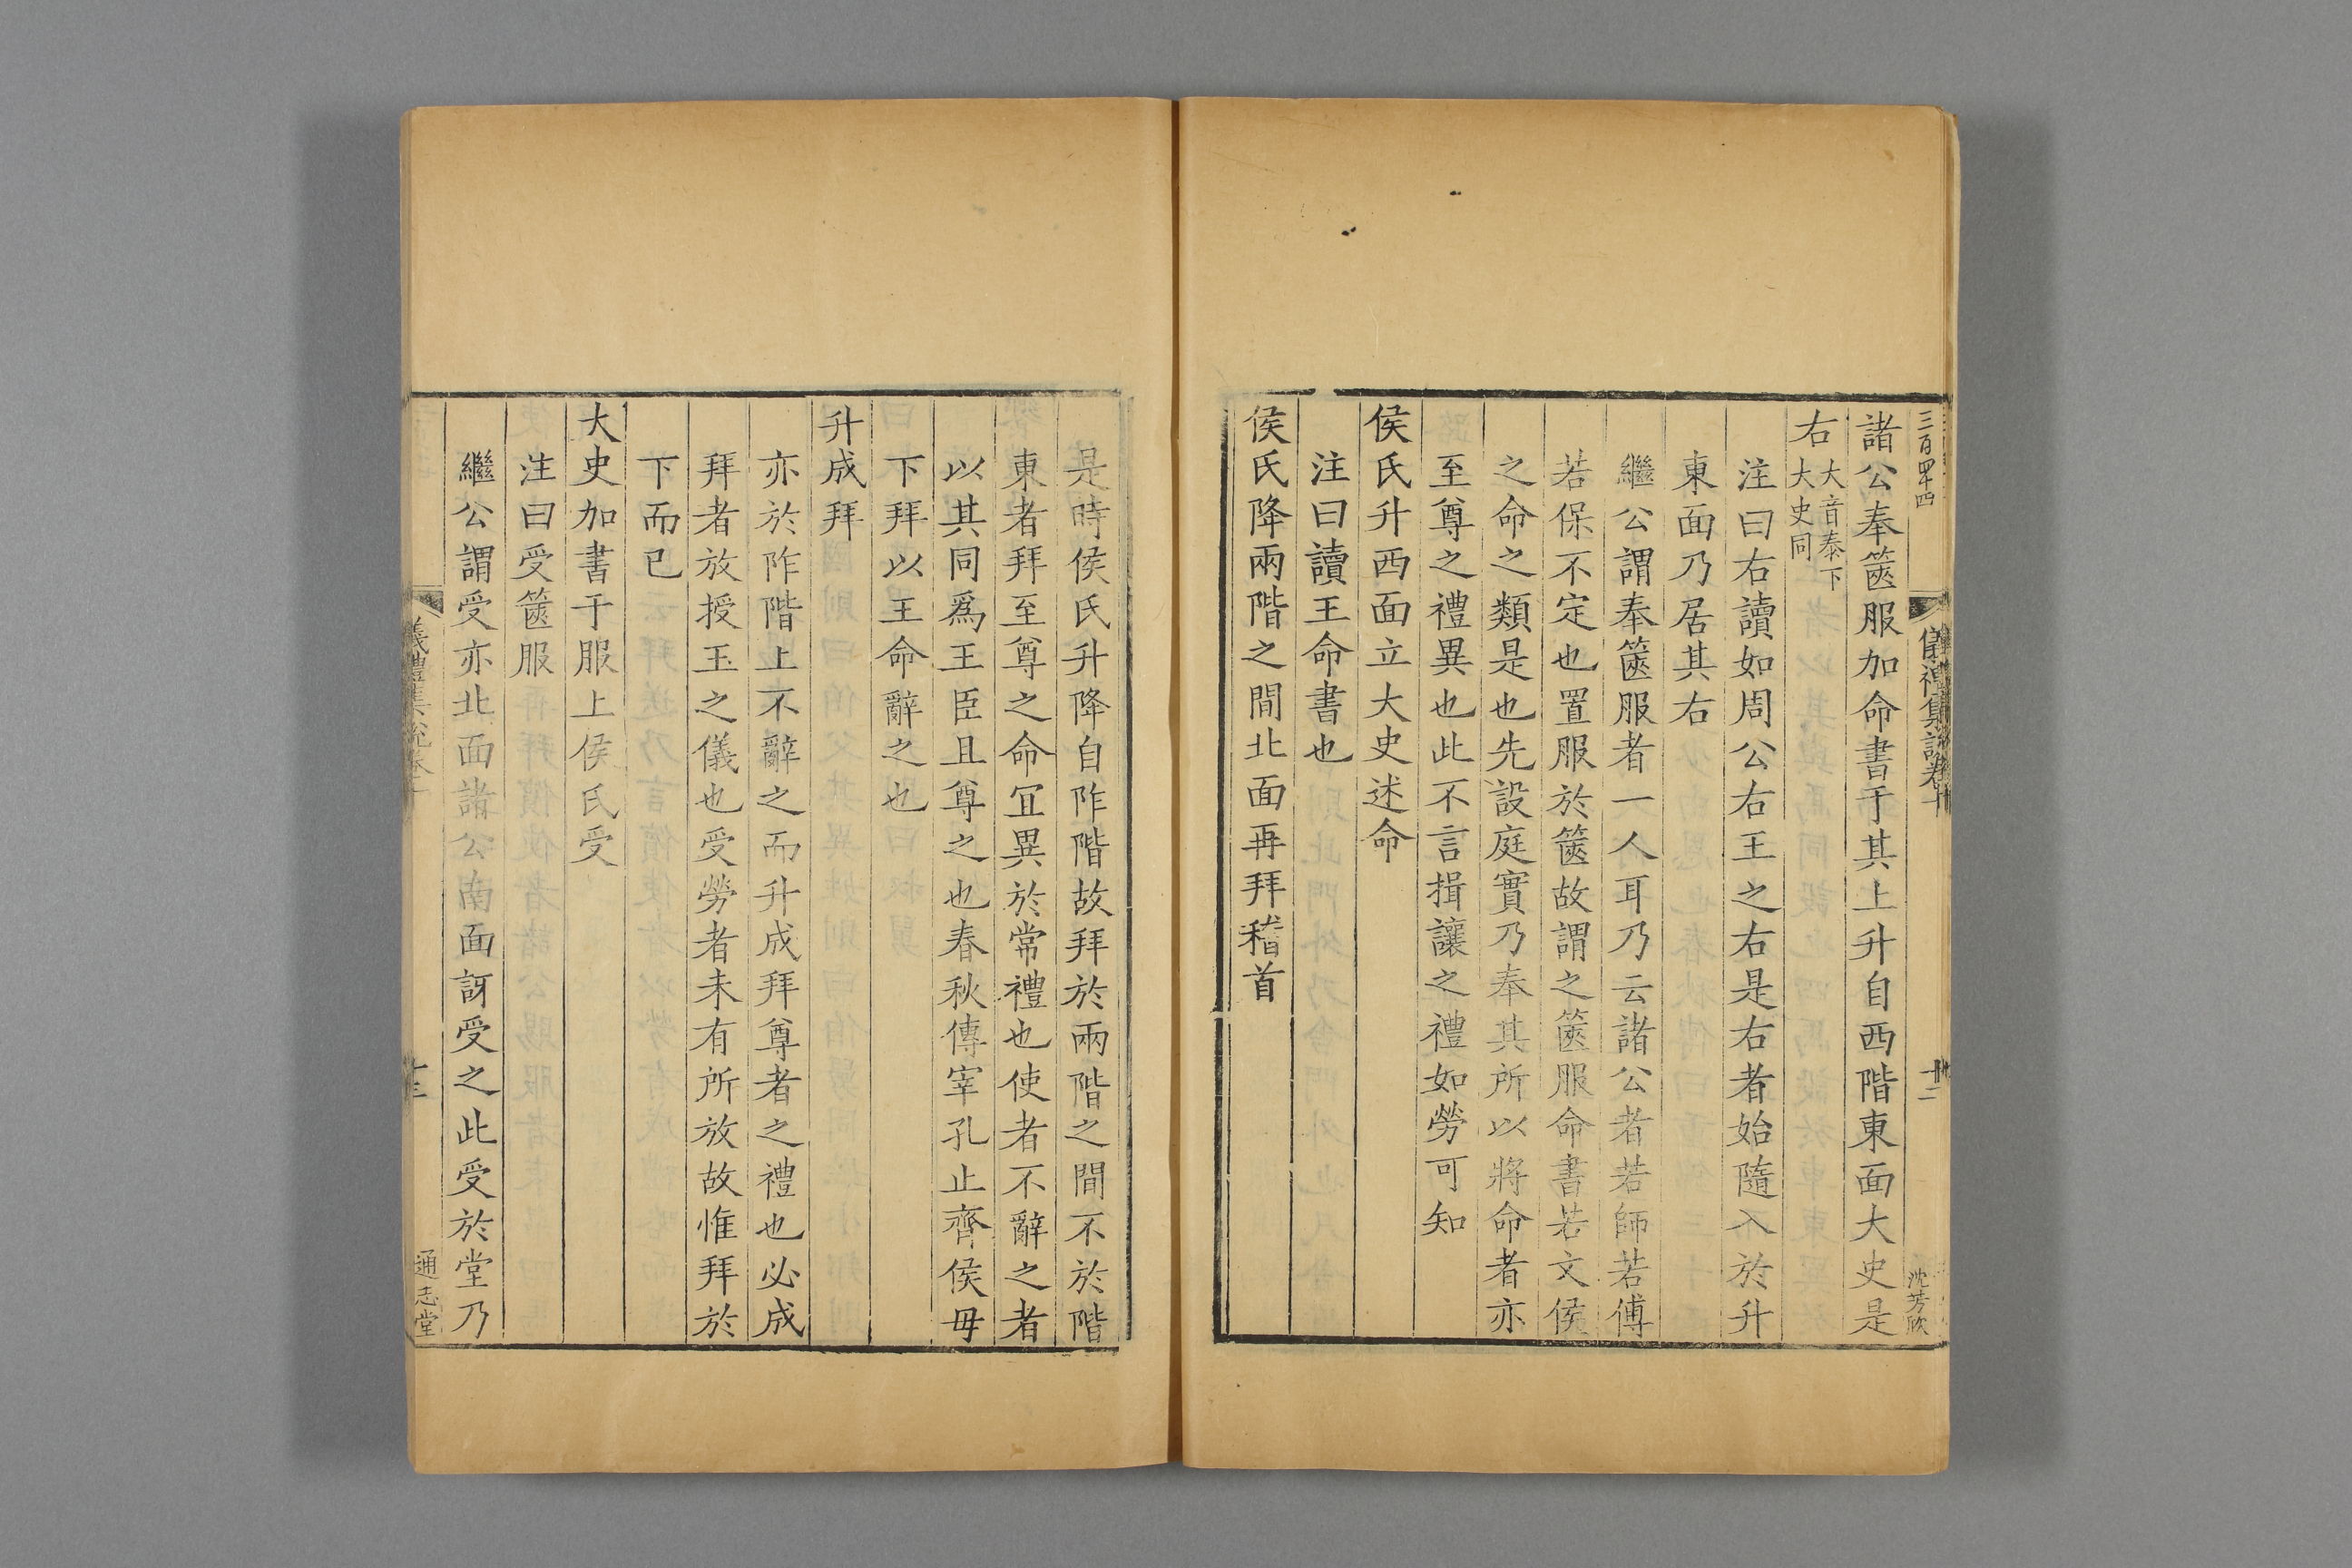 三百四十四
儀禮集說卷十
十二
沈芳欣
諸公奉篋服加命書于其上升自西階東面大史是
右大音泰下大史同
注曰右讀如周公右王之右是右者始隨入於升
東面乃居其右
繼公謂奉篋服者一人耳乃云諸公者若師若傅
若保不定也置服於篋故謂之篋服命書若文侯
之命之類是也先設庭實乃奉其所以將命者亦
至尊之禮異也此不言揖讓之禮如勞可知
侯氏升西面立大史述命
注曰讀王命書也
侯氏降兩階之間北面再拜稽首
是時侯氏升降自阼階故拜於兩階之間不於階
東者拜至尊之命宜異於常禮也使者不辭之者
以其同爲王臣且尊之也春秋傳宰孔止齊侯毋
下拜以王命辭之也
升成拜
亦於阼階上不辭之而升成拜尊者之禮也必成
拜者放授玉之儀也受勞者未有所放故惟拜於
下而已
大史加書于服上侯氏受
注曰受篋服
繼公謂受亦北面諸公南面訝受之此受於堂乃
儀禮集說卷十
十三
通志堂